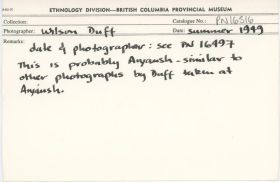 ETHNOLOGY DIVISION—BRITISH COLUMBIA PROVINCIAL MUSEUM
Collection: Catalogue No.: PN 16516
Photographer: Wilson Duff Date: summer 1949
Remarks:
date & photographer: see PN 16497
This is probably Anyaush - similar to
other photographs by Duff taken at
Anyaush.